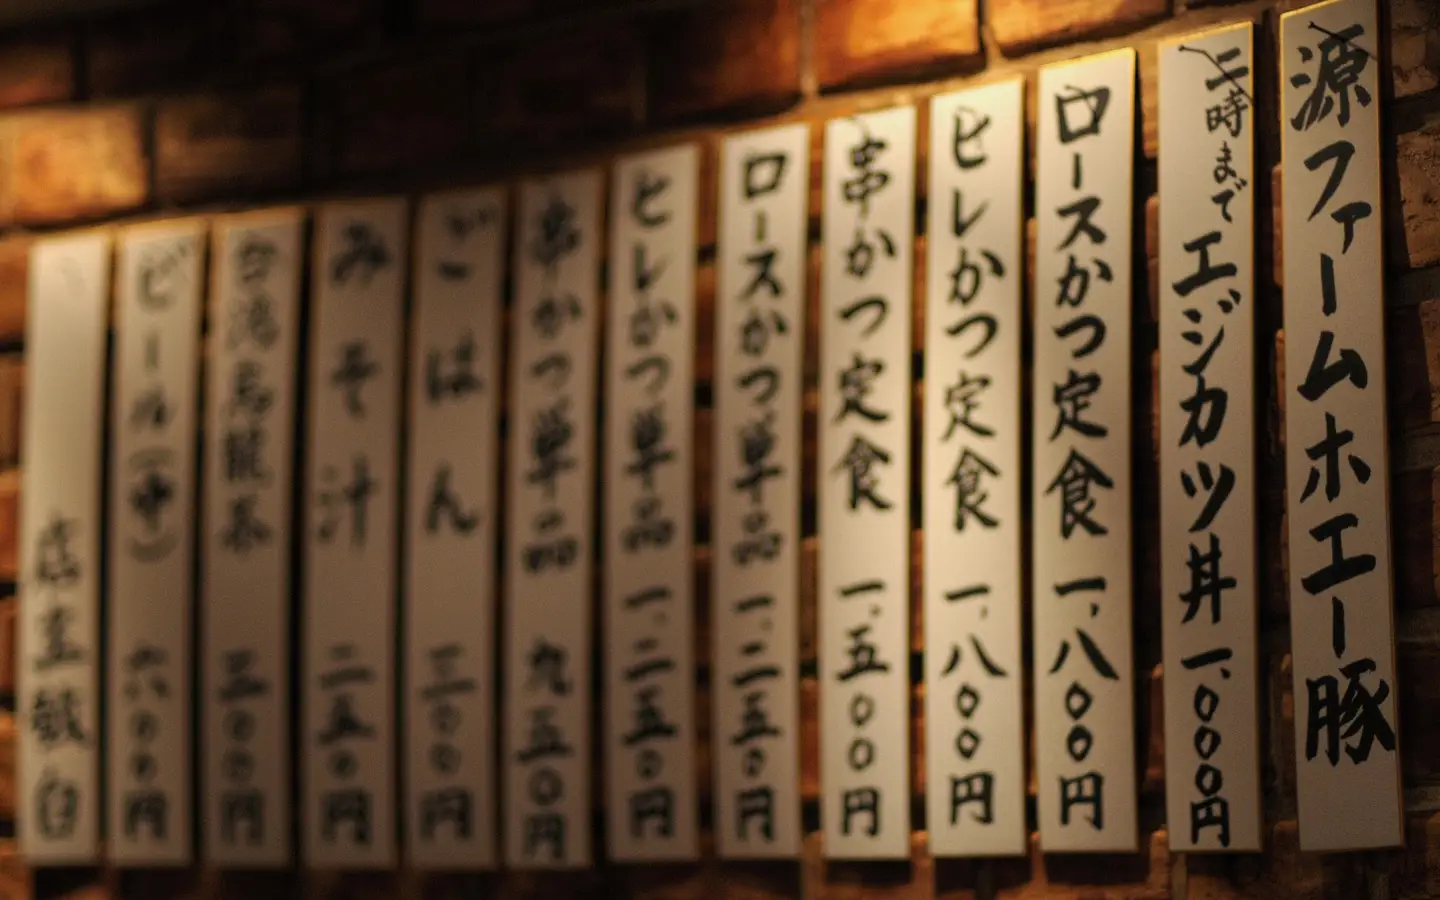 源ファームホエー豚
二時までエジカツ丼 一、〇〇〇円
ロースかつ定食 一、八〇〇円
ヒレかつ定食 一、八〇〇円
串かつ定食 一、五〇〇円
ロースかつ単品 一、二五〇円
ヒレかつ単品 一、二五〇円
串かつ単品 九五〇円
ごはん 三〇〇円
みそ汁 二五〇円
台湾烏龍茶 三〇〇円
ビール(中) 六〇〇円
店主敬白